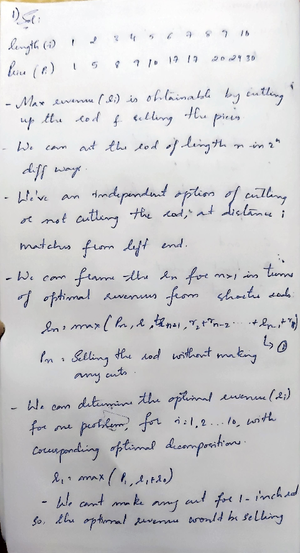 1) Sol:
length (i) 1 2 3 4 5 6 7 8 9 10
Price (Pi) 1 5 8 9 10 17 17 20 24 30
- Max revenue (ri) is obtainable by cutting
up the rod & selling the pieces
- We can cut the rod of length n in 2ⁿ
diff ways.
- We've an independent option of cutting
or not cutting the rod, at distance i
inches from left end.
- We can frame the rn for n≥1 in terms
of optimal revenues from shorter rods.
rn = max (Pn, r1 + rn-1, r2 + rn-2 .. + rn-1 + r1)
↳ ①
Pn = Selling the rod without making
any cuts.
- We can determine the optimal revenue (ri)
for one problem, for i=1,2...10, with
corresponding optimal decompositions.
r1 = max (P1, r1+r0)
- We can't make any cut for 1-inch rod
so, the optimal revenue would be selling